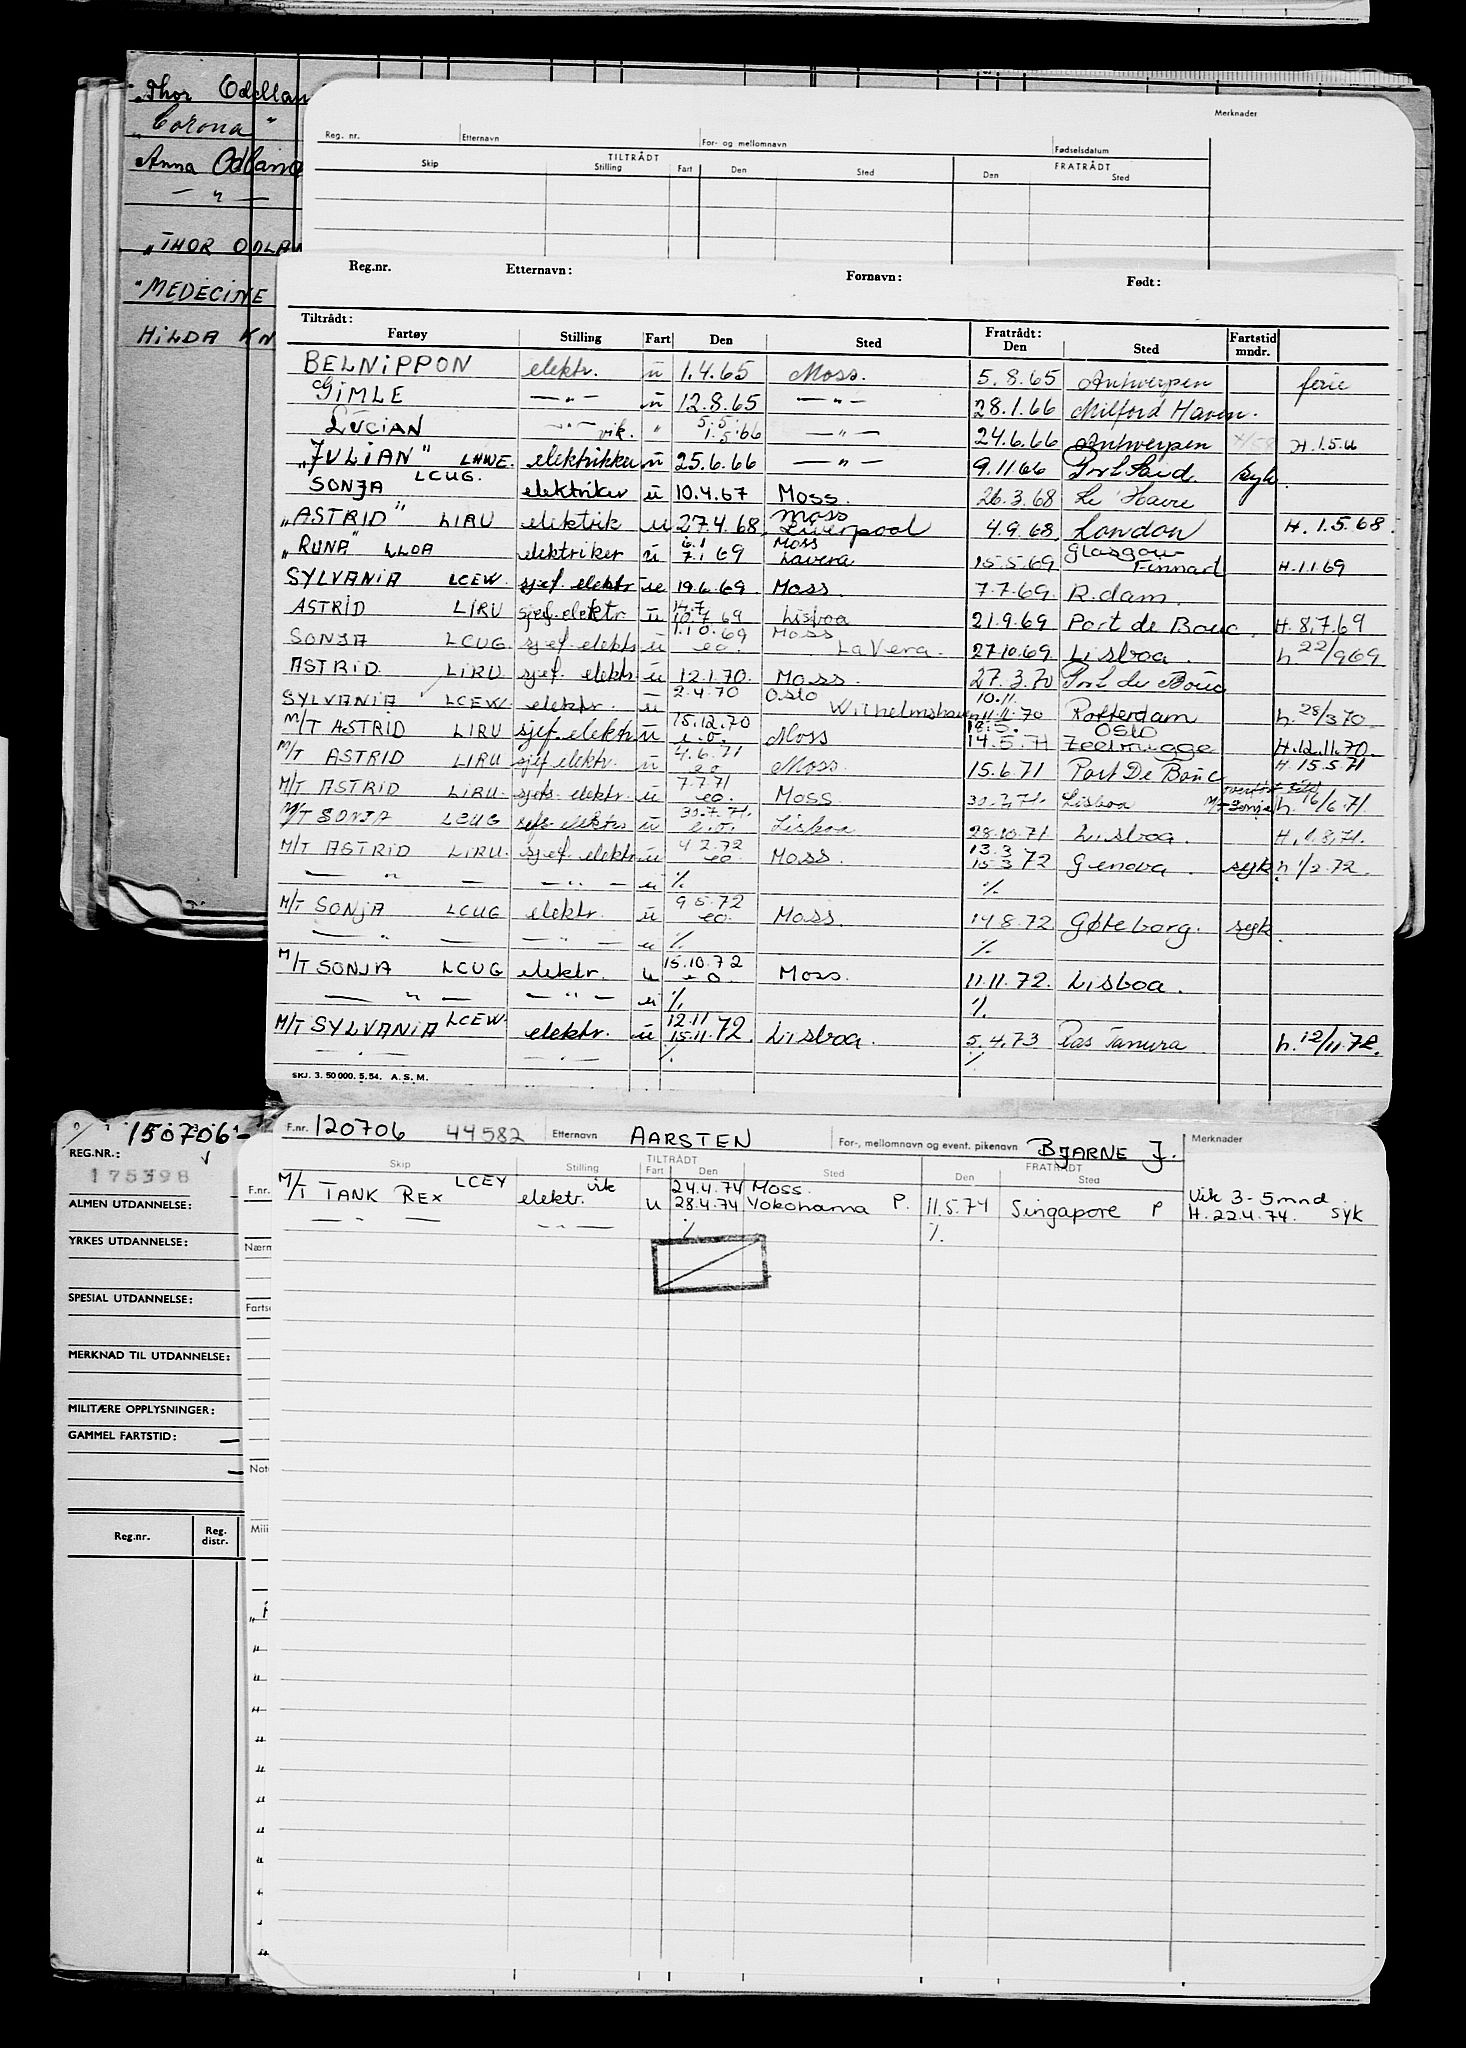 Thor Odellan
"Corona"
Anna Odland
— " —
"THOR ODLA
"MEDECINE
HILDA KN
Merknader
Reg. nr. Etternavn For- og mellomnavn Fødselsdatum
TILTRÅDT FRATRÅDT
Skip Stilling Fart Den Sted Den Sted
Reg.nr. Etternavn: Fornavn: Født:
Tiltrådt: Fratrådt: Fartstid
Fartøy Stilling Fart Den Sted Den Sted mndr.
BELNIPPON elektr. u 1.4.65 Moss. 5.8.65 Antwerpen ferie
GIMLE — " — u 12.8.65 — " — 28.1.66 Milford Haven.
LUCIAN — " — vik. " 5.5. 1.5.66 — " — 24.6.66 Antwerpen H.1.5.66
"JULIAN" LHWE. elektrikker u 25.6.66 — " — 9.11.66 Port Said syk.
SONJA LCUG. elektriker u 10.4.67 Moss. 26.3.68 Le Havre
"ASTRID" LIRU elektrik u 27.4.68. Moss Liverpool 4.9.68. London H. 1.5.68.
"RUNA" LLOA elektriker u 6.1 7.1.69 Moss Lavera 15.5.69 Glasgow Finnart H.1.1.69
SYLVANIA LCEW. sjef. elektr u 19.6.69 Moss. 7.7.69. R.dam.
ASTRID LIRU sjef. elektr u 14.7 10.7.69 Lisboa 21.9.69 Port de Bouc. H. 8.7.69
SONJA LCUG. sjef. elektr u 1.10.69 eo. Moss La Vera. 27.10.69 Lisboa. h 22/9 69
ASTRID. LIRU sjef. elektr. u 12.1.70. Moss. 27.3.70 Port de Bouc
SYLVANIA LCEW. elektr. u 2.4.70 — Oslo Wilhelmshaven 10.11. 11.11.70 Rotterdam h. 28/3 70
M/T ASTRID LIRU sjef. elektr. u 15.12.70 e.o. Moss 12.5. 14.5.71 Oslo Zeebrugge H.12.11.70.
M/T ASTRID LIRU sjef. elektr. u 4.6.71 eo Moss. 15.6.71 Port De Bouc H. 15.5.71
M/T ASTRID LIRU. sjefs. elektr. u 7.7.71 eo. Moss 30.7.71. Lisboa overført till M/T Sonja h. 16/6.71.
M/T SONJA LCUG sjefs. elektr u 30.7.71. e.o. Lisboa 28.10.71 Lisboa. H. 1.8.71.
M/T ASTRID LIRU. sjef. elektr. u 4 2.72 eo Moss. 13.3 15.3 72 Genova. syk. h 1/2.72.
— " — — " — u % %
M/T SONJA LCUG elektr. u 9 5.72 eo. Moss. 14.8.72 Gøteborg. syk.
— " — — " — u % %
M/T SONJA LCUG elektr. u 15.10.72 e o Moss. 11.11.72. Lisboa.
— " — — " — u % %
M/T SYLVANIA LCEW. elektr. u 12.11 15.11.72. Lisboa. 5.4.73 Ras Tanura h. 12/11.72.
— . — — . — % %
SKJ. 3. 50 000. 5. 54. A. S. M.
150706-
REG.NR.:
175398
ALMEN UTDANNELSE:
YRKES UTDANNELSE:
SPESIAL UTDANNELSE:
MERKNAD TIL UTDANNELSE:
MILITÆRE OPPLYSNINGER:
GAMMEL FARTSTID:
Reg.nr. Reg. distr.
F.nr.
Nærm
Fartse
Not
Mili
F.nr. 120706 44582 Etternavn AARSTEN For-, mellomnavn og event. pikenavn BJARNE J. Merknader
TILTRÅDT FRATRÅDT
Skip Stilling Fart Den Sted Den Sted
M/T TANK REX LCEY elektr. vik u 24.4.74 28.4.74 Moss. Yokohama P. 11.5.74 Singapore P Vik 3-5mnd H.22.4.74. syk
— " — — " — % %